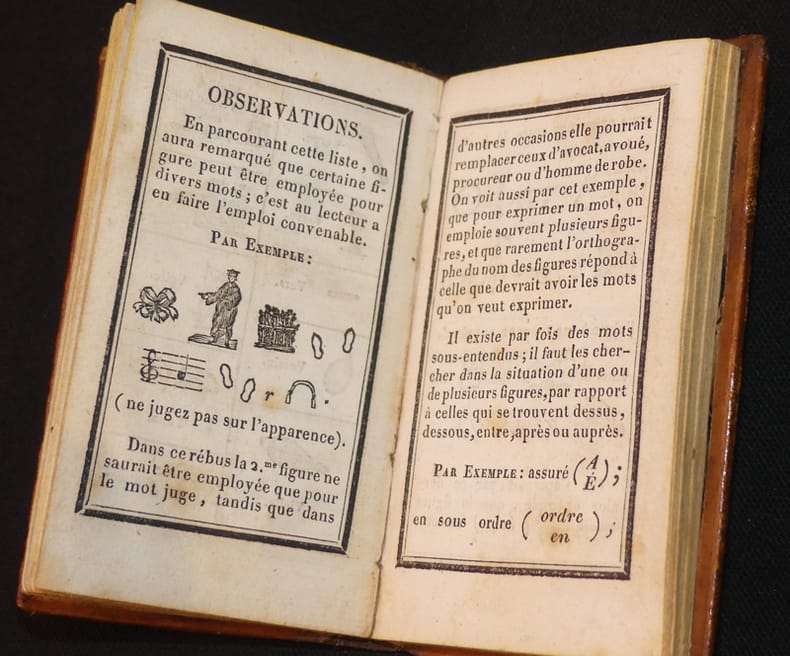 OBSERVATIONS.
En parcourant cette liste, on
aura remarqué que certaine fi-
gure peut être employée pour
divers mots; c'est au lecteur a
en faire l'emploi convenable.
PAR EXEMPLE:
r .
( ne jugez pas sur l'apparence).
Dans ce rébus la 2.me figure ne
saurait être employée que pour
le mot juge, tandis que dans
d'autres occasions elle pourrait
remplacer ceux d'avocat, avoué,
procureur ou d'homme de robe.
On voit aussi par cet exemple,
que pour exprimer un mot, on
emploie souvent plusieurs figu-
res, et que rarement l'orthogra-
phe du nom des figures répond à
celle que devrait avoir les mots
qu'on veut exprimer.
Il existe par fois des mots
sous-entendus; il faut les cher-
cher dans la situation d'une ou
de plusieurs figures, par rapport
à celles qui se trouvent dessus,
dessous, entre, après ou auprès.
PAR EXEMPLE: assuré (A
É);
en sous ordre (ordre
en);